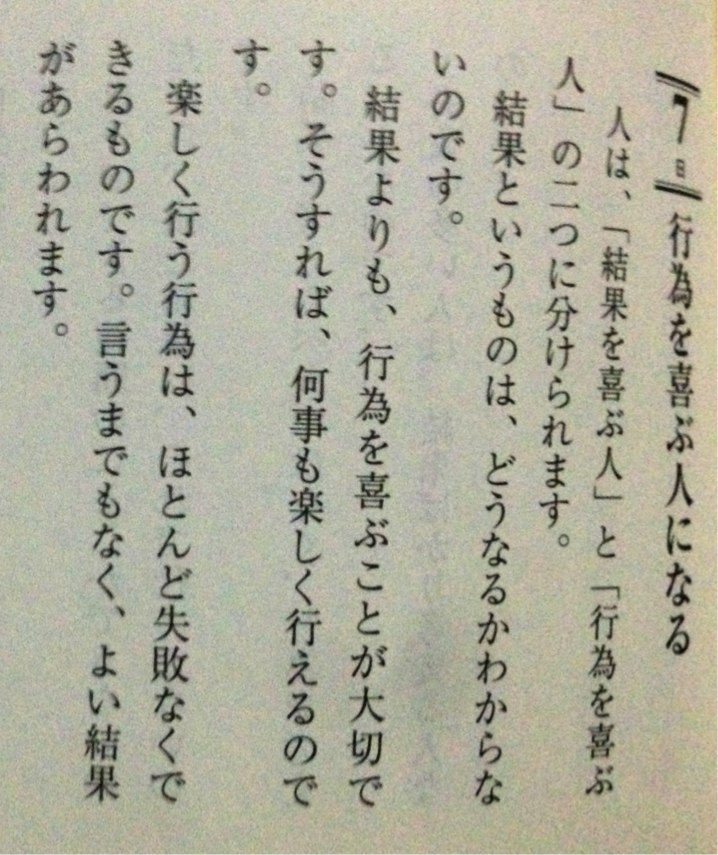 7日 行為を喜ぶ人になる
人は、「結果を喜ぶ人」と「行為を喜ぶ
人」の二つに分けられます。
結果というものは、どうなるかわからな
いのです。
結果よりも、行為を喜ぶことが大切で
す。そうすれば、何事も楽しく行えるので
す。
楽しく行う行為は、ほとんど失敗なくで
きるものです。言うまでもなく、よい結果
があらわれます。